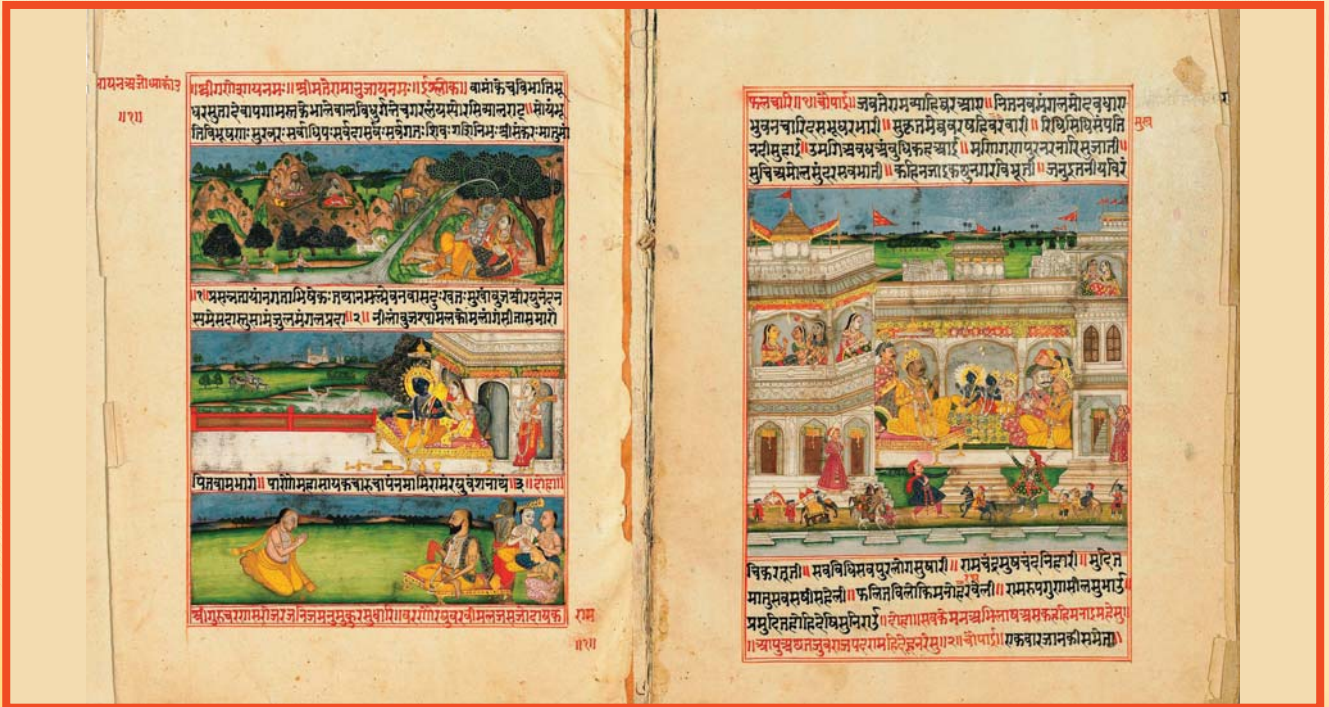 रायनअजोध्याकां२
॥१॥
॥श्रीगणेशायनमः॥श्रीमतेरामानुजायनमः॥ईश्लोक॥वामांकेचविभातिभू
धरसुतादेवापगामस्तकेभालेबालविधुर्गलेचगरलंयस्योरसिव्यालराट्॥सोयंभू
तिविभूषणःसुरवरःसर्वाधिपःसर्वदासर्वःसर्वगतःशिवःशशिनिभःश्रीसंकरःपातुमां
॥१॥प्रसन्नतायांनगताभिषेकःतथानमम्लेवनवासदुःखतःमुखांबुजश्रीरघुनंदन
स्यमेसदास्तुसामंजुलमंगलप्रदा॥२॥नीलांबुजश्यामलकोमलांगंसीतासमारो
पितवामभागं॥पाणौमहासायकचारुचापंनमामिरामंरघुवंशनाथं॥३॥दोहा॥
श्रीगुरुचरणसरोजरजनिजमनमुकुरसुधारि॥वरणौरघुवरवीमलजसजोदायक
राम
॥१॥
फलचारि॥१॥चौपाई॥जवतेरामव्याहिघरआए॥नितनवमंगलमोदवधाए
भुवनचारिदसभूधरभारी॥सुकृतमेघवरषहिवरवारी॥रिधिसिधिसंपति
नदीसुहाई॥उमगिअवधअंवुधिकहआई॥मणिगणपुरनरनारिसुजाती॥
सुचिअमोलसुंदरसवभाती॥कहिनजाइकछुनगरविभूती॥जनुइतनीयविरं
चिकरतूती॥सवविधिसवपुरलोगसुषारी॥रामचंद्रमुषचंदनिहारी॥मुदित
मातुसवसषीसहेली॥फलितविलोकिमनोरथवेली॥रामरुपगुणसीलसुभाउ॥
प्रमुदितहोहिदेषिमुनिराउ॥दोहा॥सवकेमनअभिलाषअसकहहिमनाइमहेसु॥
॥आपुअछतजुवराजपदरामहिदेहूनरेसु॥२॥चौपाई॥एकवारजानकीसमेता॥